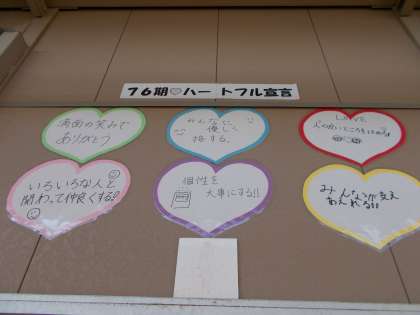 76期♡ハートフル宣言
満面の笑みで
ありがとう
みんなに
優しく
接する。
LOVE
人の良いところを
いろいろな人と
関わって仲良くする!!
個性を
大事にする!!
みんなが支え
あえれる!!